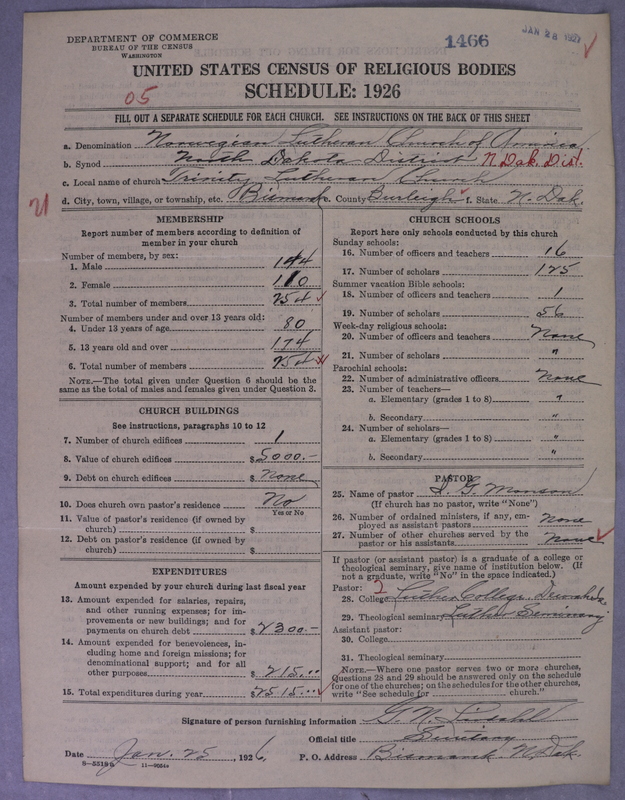 DEPARTMENT OF COMMERCE
BUREAU OF THE CENSUS
WASHINGTON
1466
JAN 28 1927
UNITED STATES CENSUS OF RELIGIOUS BODIES
SCHEDULE: 1926
05
FILL OUT A SEPARATE SCHEDULE FOR EACH CHURCH. SEE INSTRUCTIONS ON THE BACK OF THIS SHEET
a. Denomination Norwegian Lutheran Church of America
b. Synod North Dakota District N. Dak. Dist.
c. Local name of church Trinity Lutheran Church
d. City, town, village, or township, etc. Bismarck e. County Burleigh f. State N. Dak.
21
MEMBERSHIP
Report number of members according to definition of
member in your church
Number of members, by sex:
1. Male 144
2. Female 110
3. Total number of members 254
Number of members under and over 13 years old:
4. Under 13 years of age 80
5. 13 years old and over 174
6. Total number of members 254
NOTE.—The total given under Question 6 should be the
same as the total of males and females given under Question 3.
CHURCH BUILDINGS
See instructions, paragraphs 10 to 12
7. Number of church edifices 1
8. Value of church edifices $5000.–
9. Debt on church edifices $None
10. Does church own pastor's residence No
Yes or No
11. Value of pastor's residence (if owned by
church) $
12. Debt on pastor's residence (if owned by
church) $
EXPENDITURES
Amount expended by your church during last fiscal year
13. Amount expended for salaries, repairs,
and other running expenses; for im-
provements or new buildings; and for
payments on church debt $2300.–
14. Amount expended for benevolences, in-
cluding home and foreign missions; for
denominational support; and for all
other purposes $215.00
15. Total expenditures during year $2515.00
CHURCH SCHOOLS
Report here only schools conducted by this church
Sunday schools:
16. Number of officers and teachers 16
17. Number of scholars 125
Summer vacation Bible schools:
18. Number of officers and teachers 1
19. Number of scholars 56
Week-day religious schools:
20. Number of officers and teachers None
21. Number of scholars "
Parochial schools:
22. Number of administrative officers None
23. Number of teachers—
a. Elementary (grades 1 to 8) "
b. Secondary "
24. Number of scholars—
a. Elementary (grades 1 to 8) "
b. Secondary "
PASTOR
25. Name of pastor G. Monson
(If church has no pastor, write "None")
26. Number of ordained ministers, if any, em-
ployed as assistant pastors None
27. Number of other churches served by the
pastor or his assistants None
If pastor (or assistant pastor) is a graduate of a college or
theological seminary, give name of institution below. (If
not a graduate, write "No" in the space indicated.)
Pastor: 2
28. College Luther College,
29. Theological seminary Luther Seminary
Assistant pastor:
30. College
31. Theological seminary
NOTE.—Where one pastor serves two or more churches,
Questions 28 and 29 should be answered only on the schedule
for one of the churches; on the schedules for the other churches,
write "See schedule for church."
Signature of person furnishing information G. N. Lindahl
Official title Secretary
Date Jan. 25, 1926. P. O. Address Bismarck N. Dak.